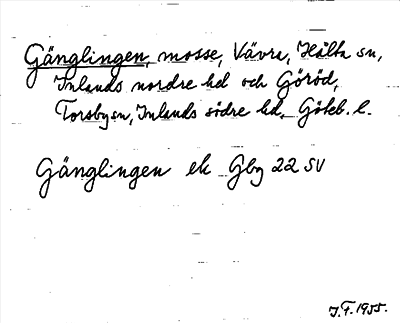 Gänglingen, mosse, Vävra, Hålta sn,
Inlands nordre hd och Göröd,
Torsby sn, Inlands södre hd, Göteb. l.
Gänglingen ek Gbg 22 SV
J.F. 1955.